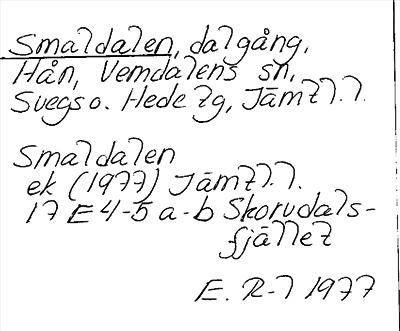 Smaldalen, dalgång,
Hån, Vemdalens sn,
Svegs o. Hede tg, Jämtl.l.
Smaldalen
ek (1977) Jämtl.l.
17 E 4-5 a-b Skorvdals-
fjället
E. R-l 1977